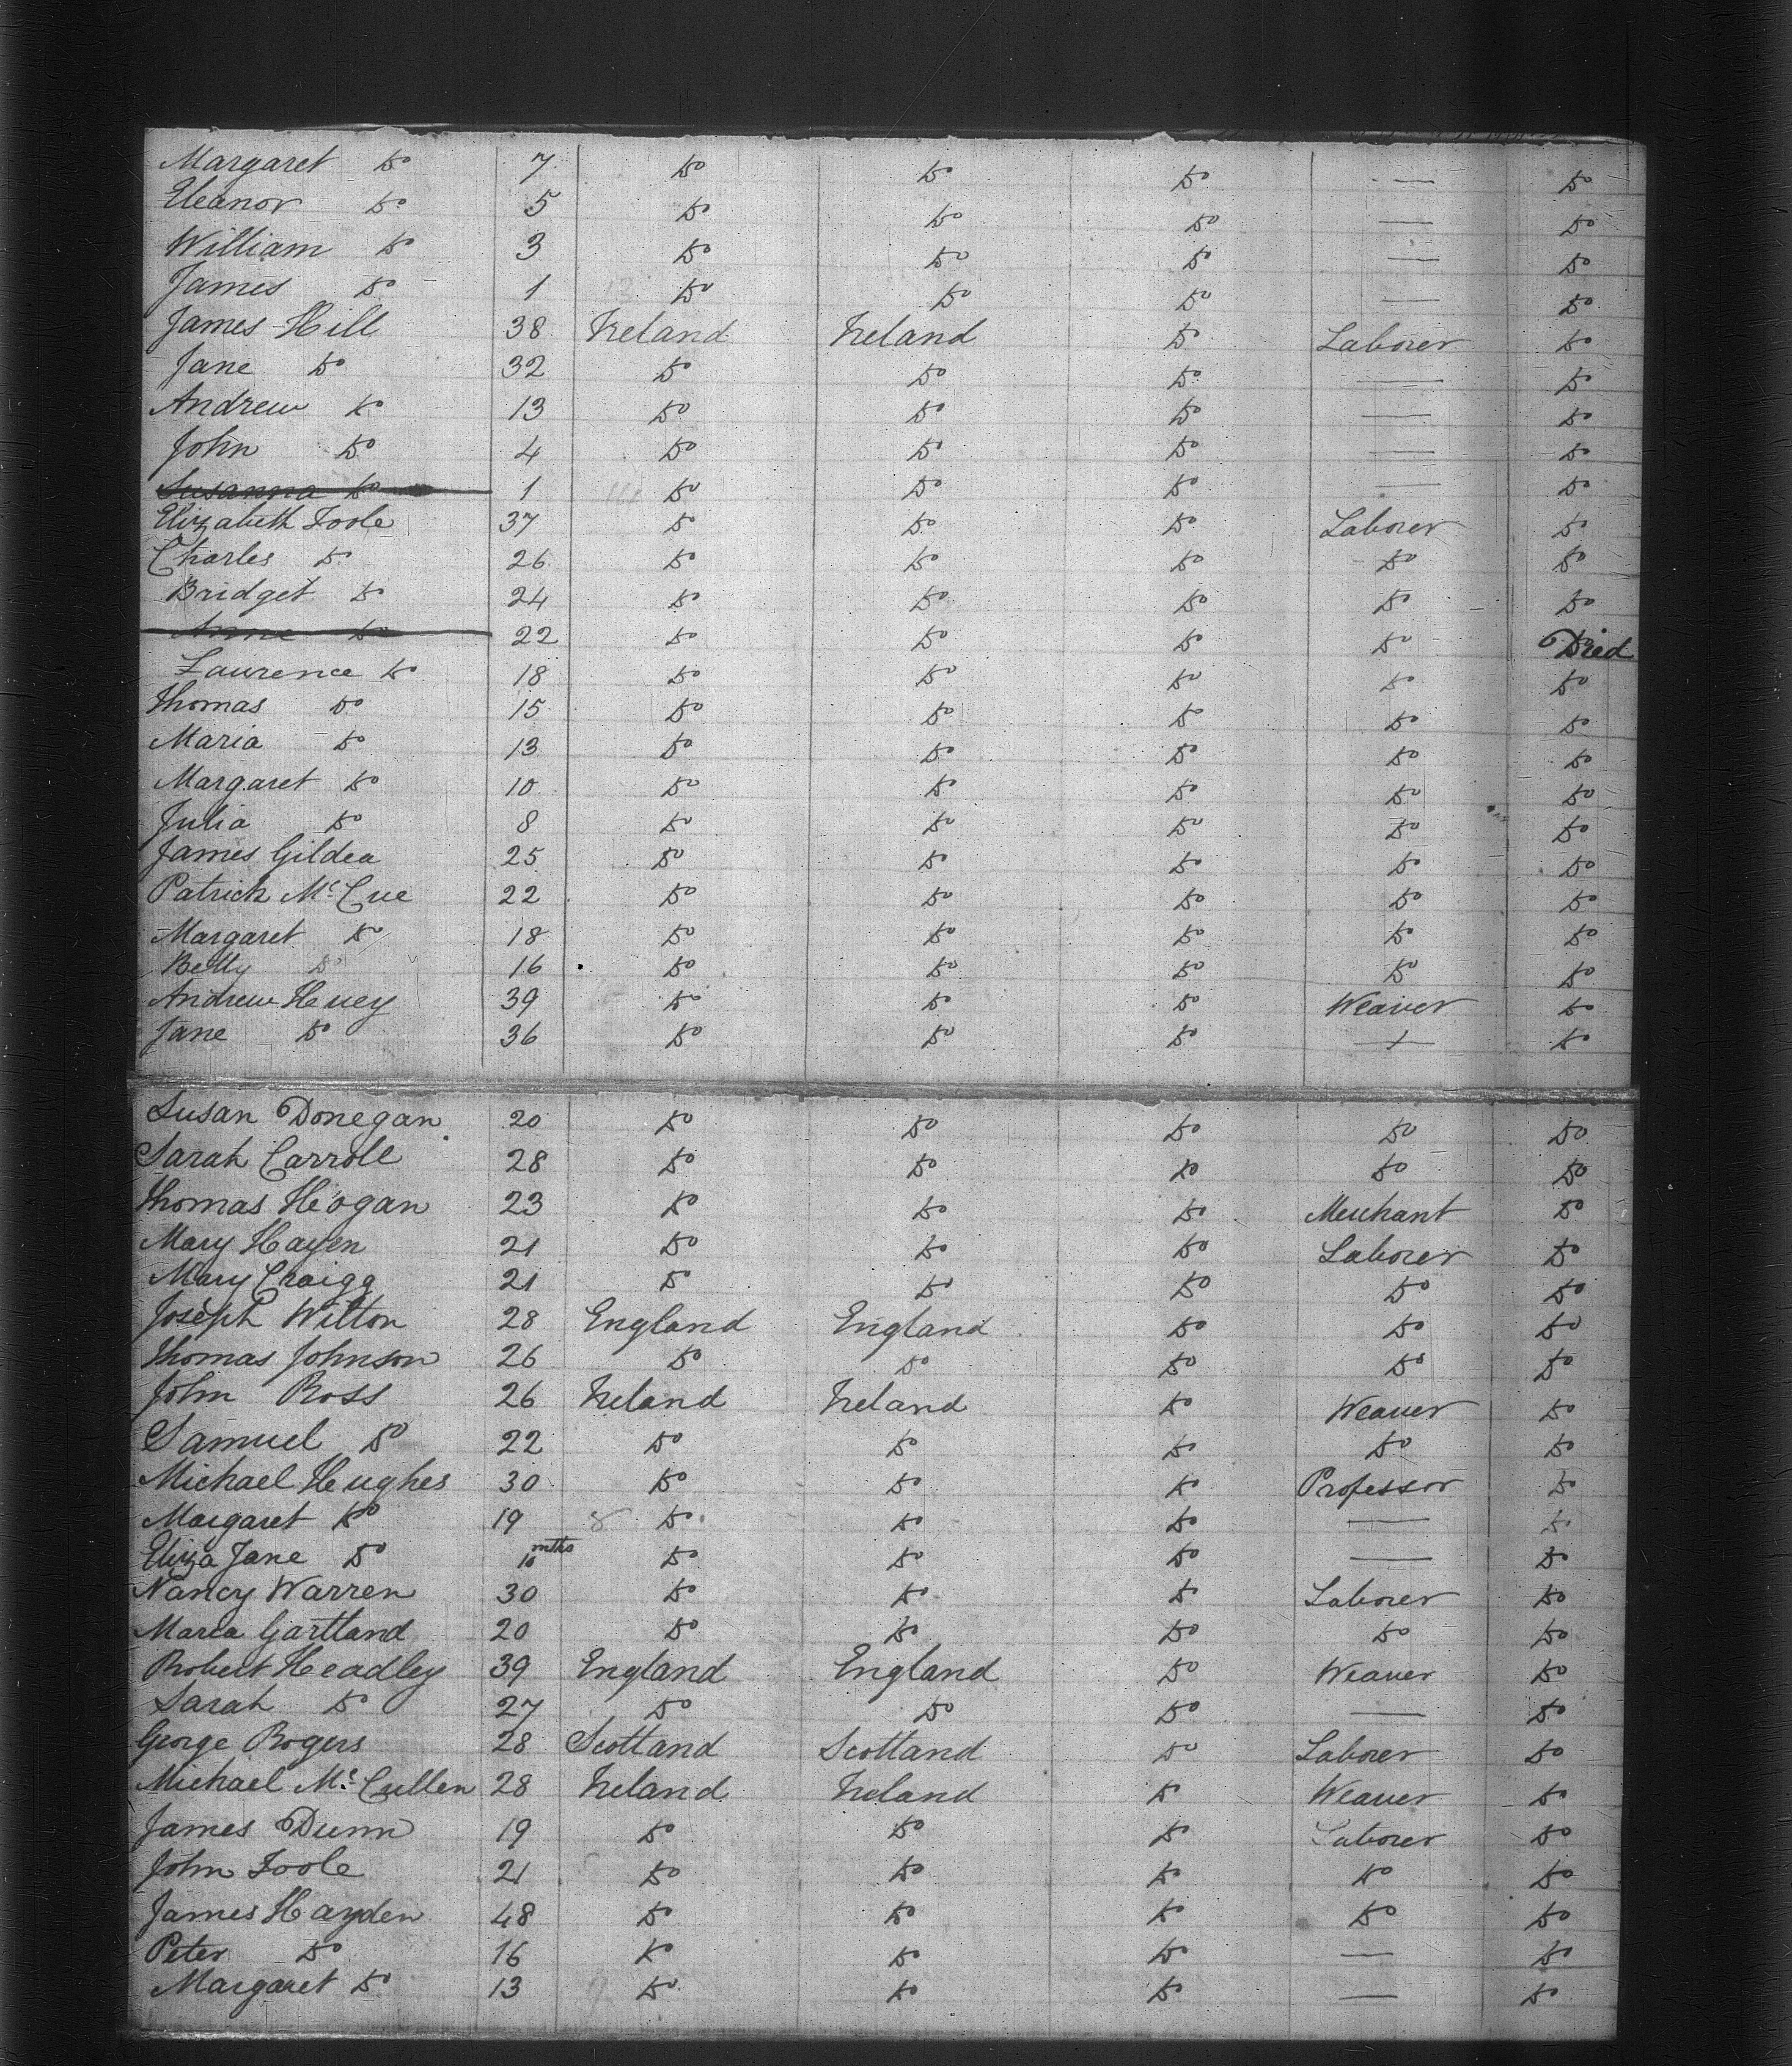 Margaret Do 7 Do Do Do — Do
Eleanor Do 5 Do Do Do — Do
William Do 3 Do Do Do — Do
James Do 1 Do Do Do — Do
James Hill 38 Ireland Ireland Do Laborer Do
Jane Do 32 Do Do Do — Do
Andrew Do 13 Do Do Do — Do
John Do 4 Do Do Do — Do
Susanna Do 1 Do Do Do — Do
Elizabeth Toole 37 Do Do Do Laborer Do
Charles Do 26 Do Do Do Do Do
Bridget Do 24 Do Do Do Do Do
Anne Do 22 Do Do Do Do Died
Lawrence Do 18 Do Do Do Do Do
Thomas Do 15 Do Do Do Do Do
Maria Do 13 Do Do Do Do Do
Margaret Do 10 Do Do Do Do Do
Julia Do 8 Do Do Do Do Do
James Gildea 25 Do Do Do Do Do
Patrick McCue 22 Do Do Do Do Do
Margaret Do 18 Do Do Do Do Do
Betty Do 16 Do Do Do Do Do
Andrew Huey 39 Do Do Do Weaver Do
Jane Do 36 Do Do Do — Do
Susan Donegan 20 Do Do Do Do Do
Sarah Carroll 28 Do Do Do Do Do
Thomas Heogan 23 Do Do Do Merchant Do
Mary Hayen 21 Do Do Do Laborer Do
Mary Craigg 21 Do Do Do Do Do
Joseph Wilton 28 England England Do Do Do
Thomas Johnson 26 Do Do Do Do Do
John Ross 26 Ireland Ireland Do Weaver Do
Samuel Do 22 Do Do Do Do Do
Michael Hughes 30 Do Do Do Professor Do
Margaret Do 19 Do Do Do — Do
Eliza Jane Do 10 mths Do Do Do — Do
Nancy Warren 30 Do Do Do Laborer Do
Maria Gartland 20 Do Do Do Do Do
Robert Headley 39 England England Do Weaver Do
Sarah Do 27 Do Do Do — Do
George Rogers 28 Scotland Scotland Do Laborer Do
Michael McCullen 28 Ireland Ireland Do Weaver Do
James Dunn 19 Do Do Do Laborer Do
John Toole 21 Do Do Do Do Do
James Hayden 48 Do Do Do Do Do
Peter Do 16 Do Do Do — Do
Margaret Do 13 Do Do Do — Do